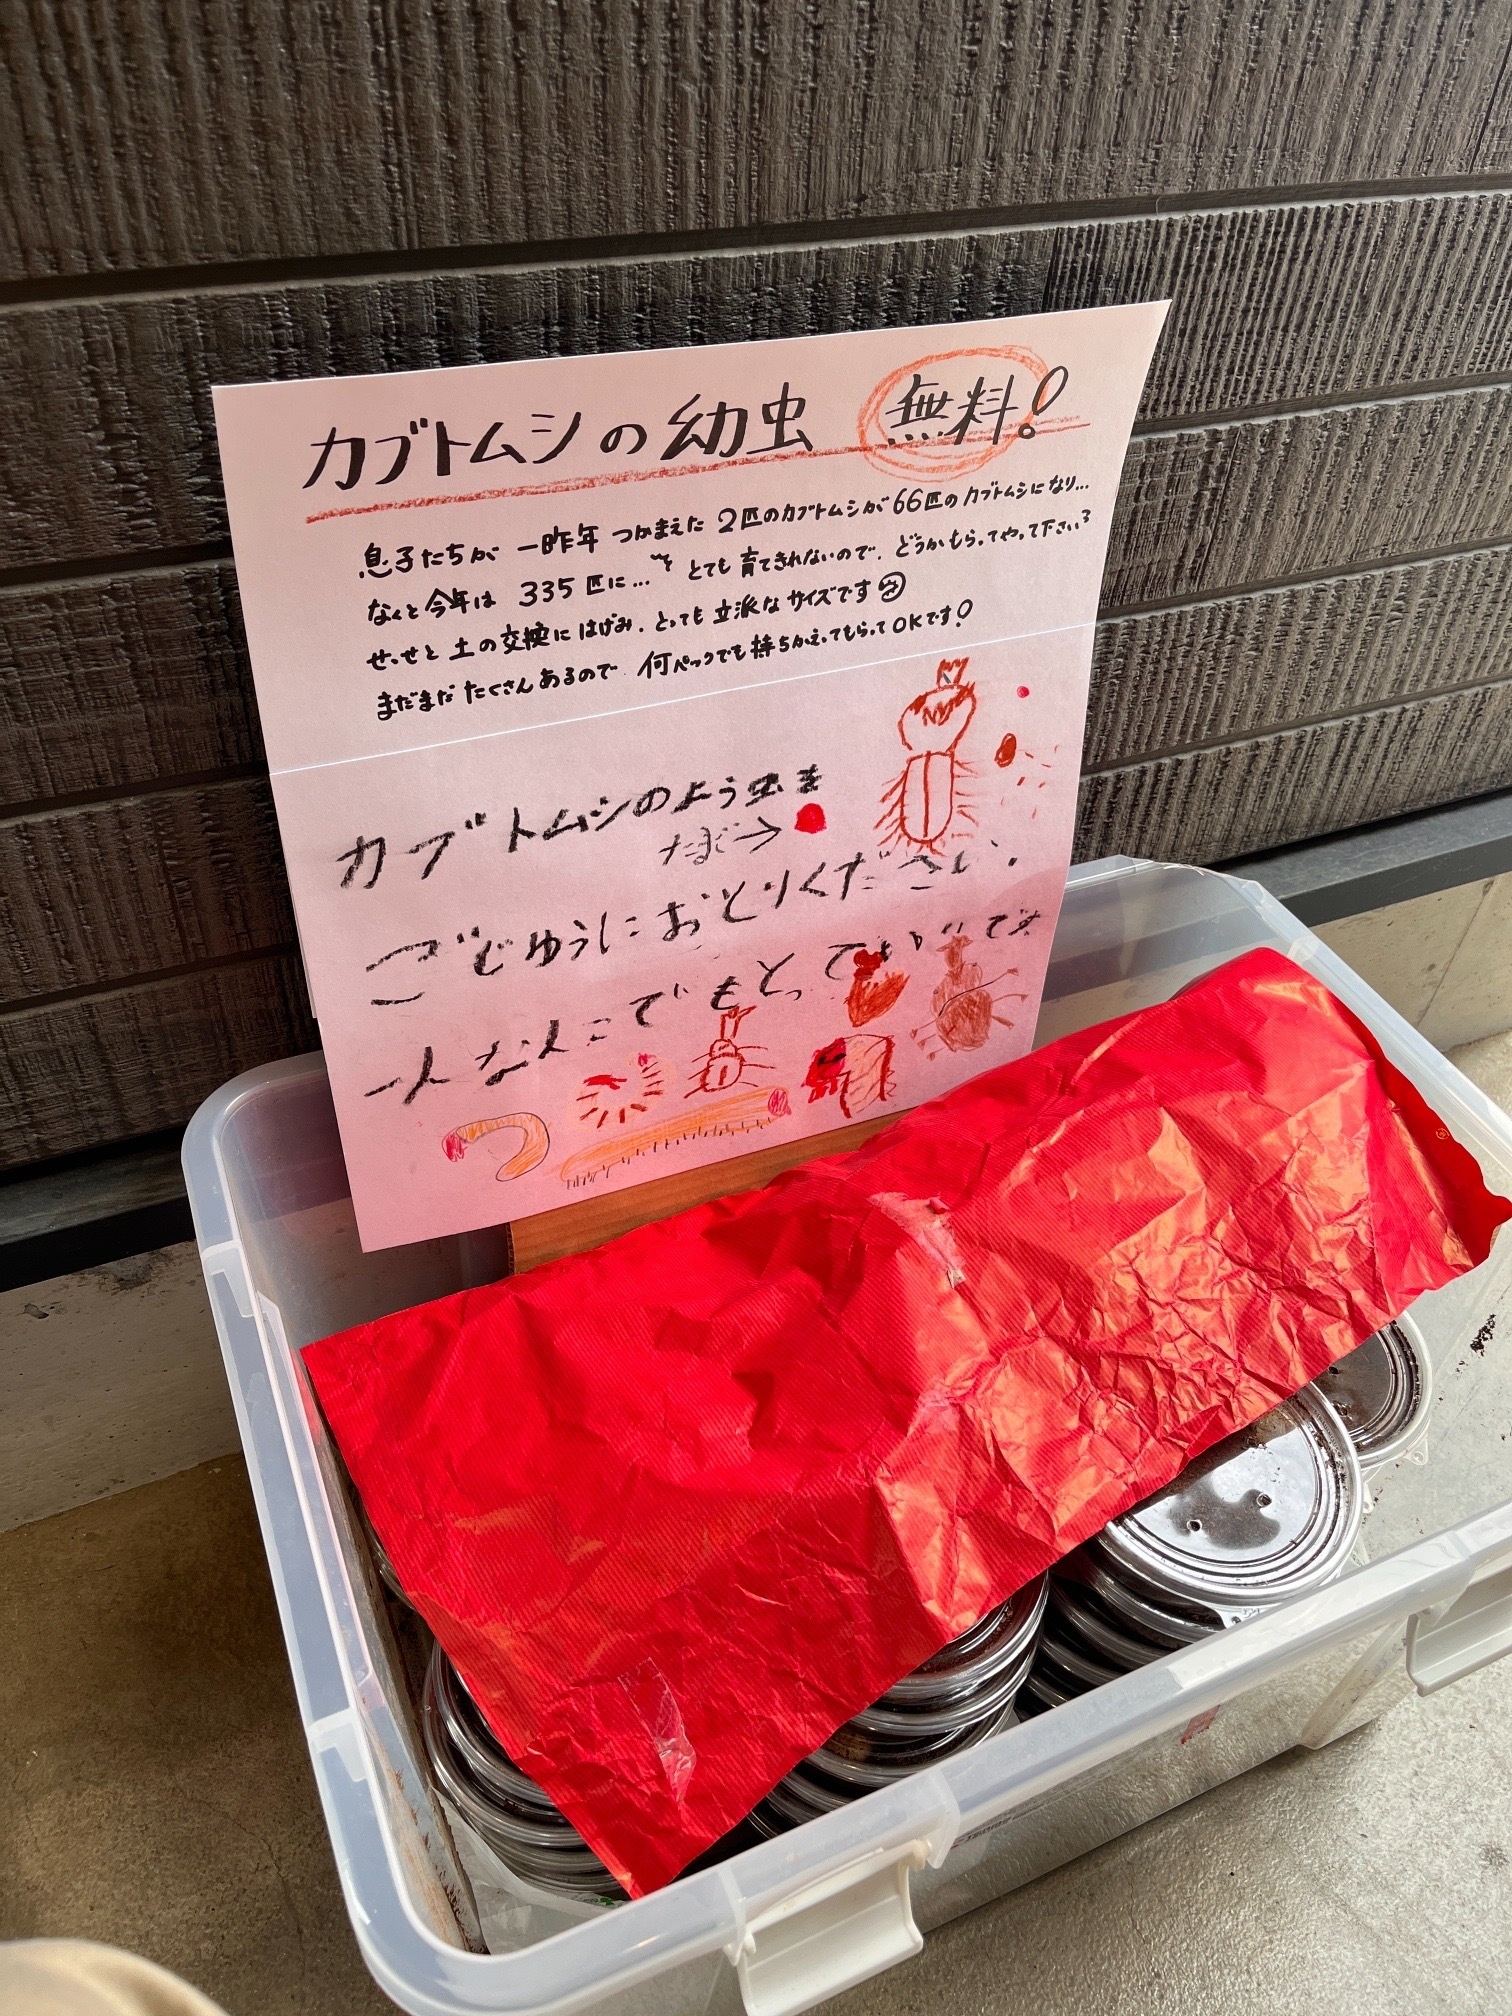 カブトムシの幼虫 無料!
息子たちが 一昨年 つかまえた 2匹のカブトムシが 66匹のカブトムシになり…
なんと今年は 335匹に… とても 育てきれないので、どうかもらってやって下さい
せっせと 土の交換に はげみ、とっても 立派な サイズです
まだまだ たくさん あるので 何パックでも 持ちかえってもらって OKです!
カブトムシのよう虫を
たまご→
ごじゆうにおとりください。
一人なんこでもとっていいです